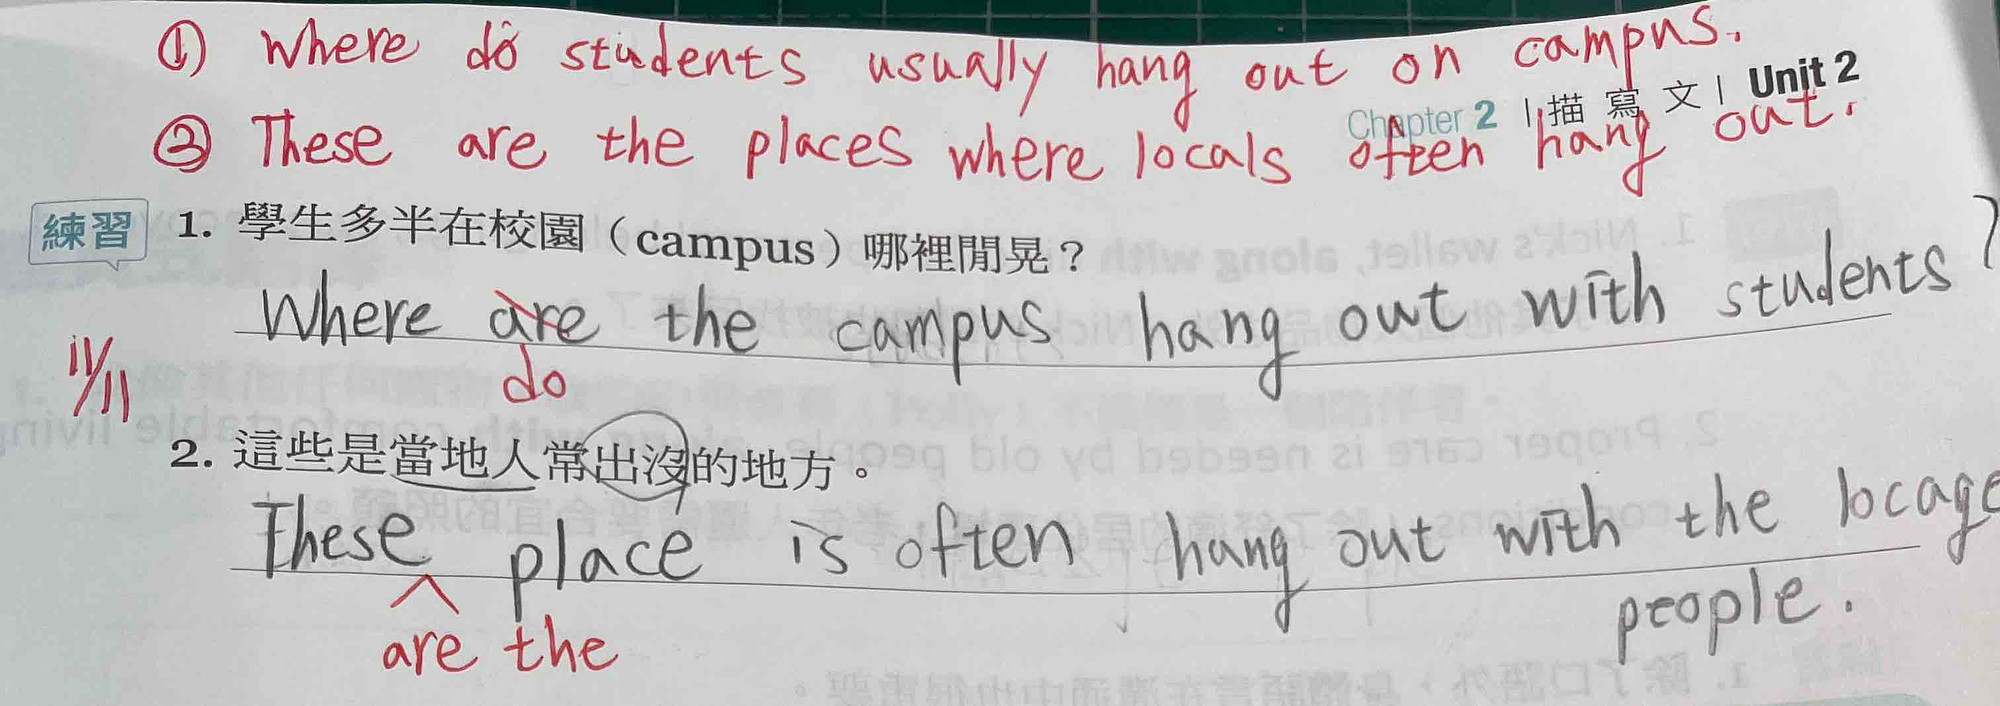 ① Where do students usually hang out on campus.
Chapter 2 | 描寫文 | Unit 2
② These are the places where locals often hang out.
練習 1. 學生多半在校園（campus）哪裡閒晃？
Where are the campus hang out with students?
do
11/11
2. 這些是當地人常出沒的地方。
These place is often hang out with the locage
people.
are the